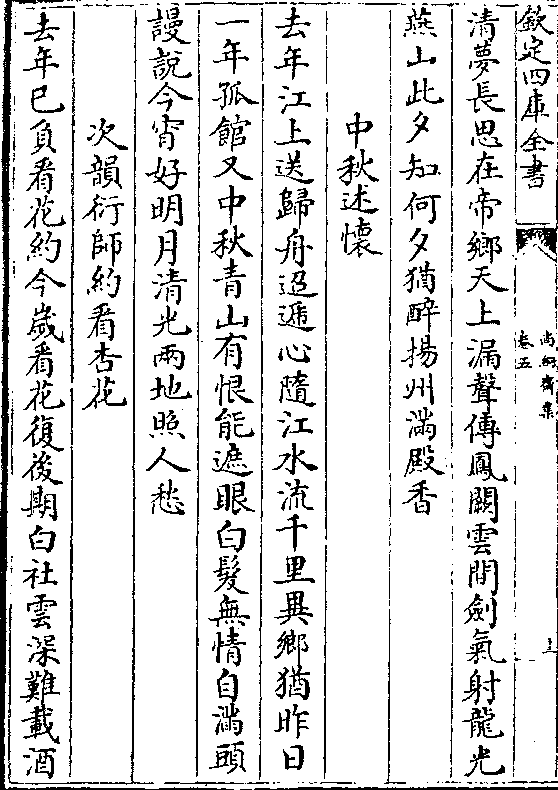 欽定四庫全書
尚絅齋集
卷五
清夢長思在帝鄉天上漏聲傳鳳闕雲間劍氣射龍光
燕山此夕知何夕猶醉揚州滿殿香
中秋述懷
去年江上送歸舟迢遞心隨江水流千里異鄉猶昨日
一年孤館又中秋青山有恨能遮眼白髮無情自滿頭
謾說今宵好明月清光兩地照人愁
次韻衍師約看杏花
去年已負看花約今歲看花復後期白社雲深難載酒